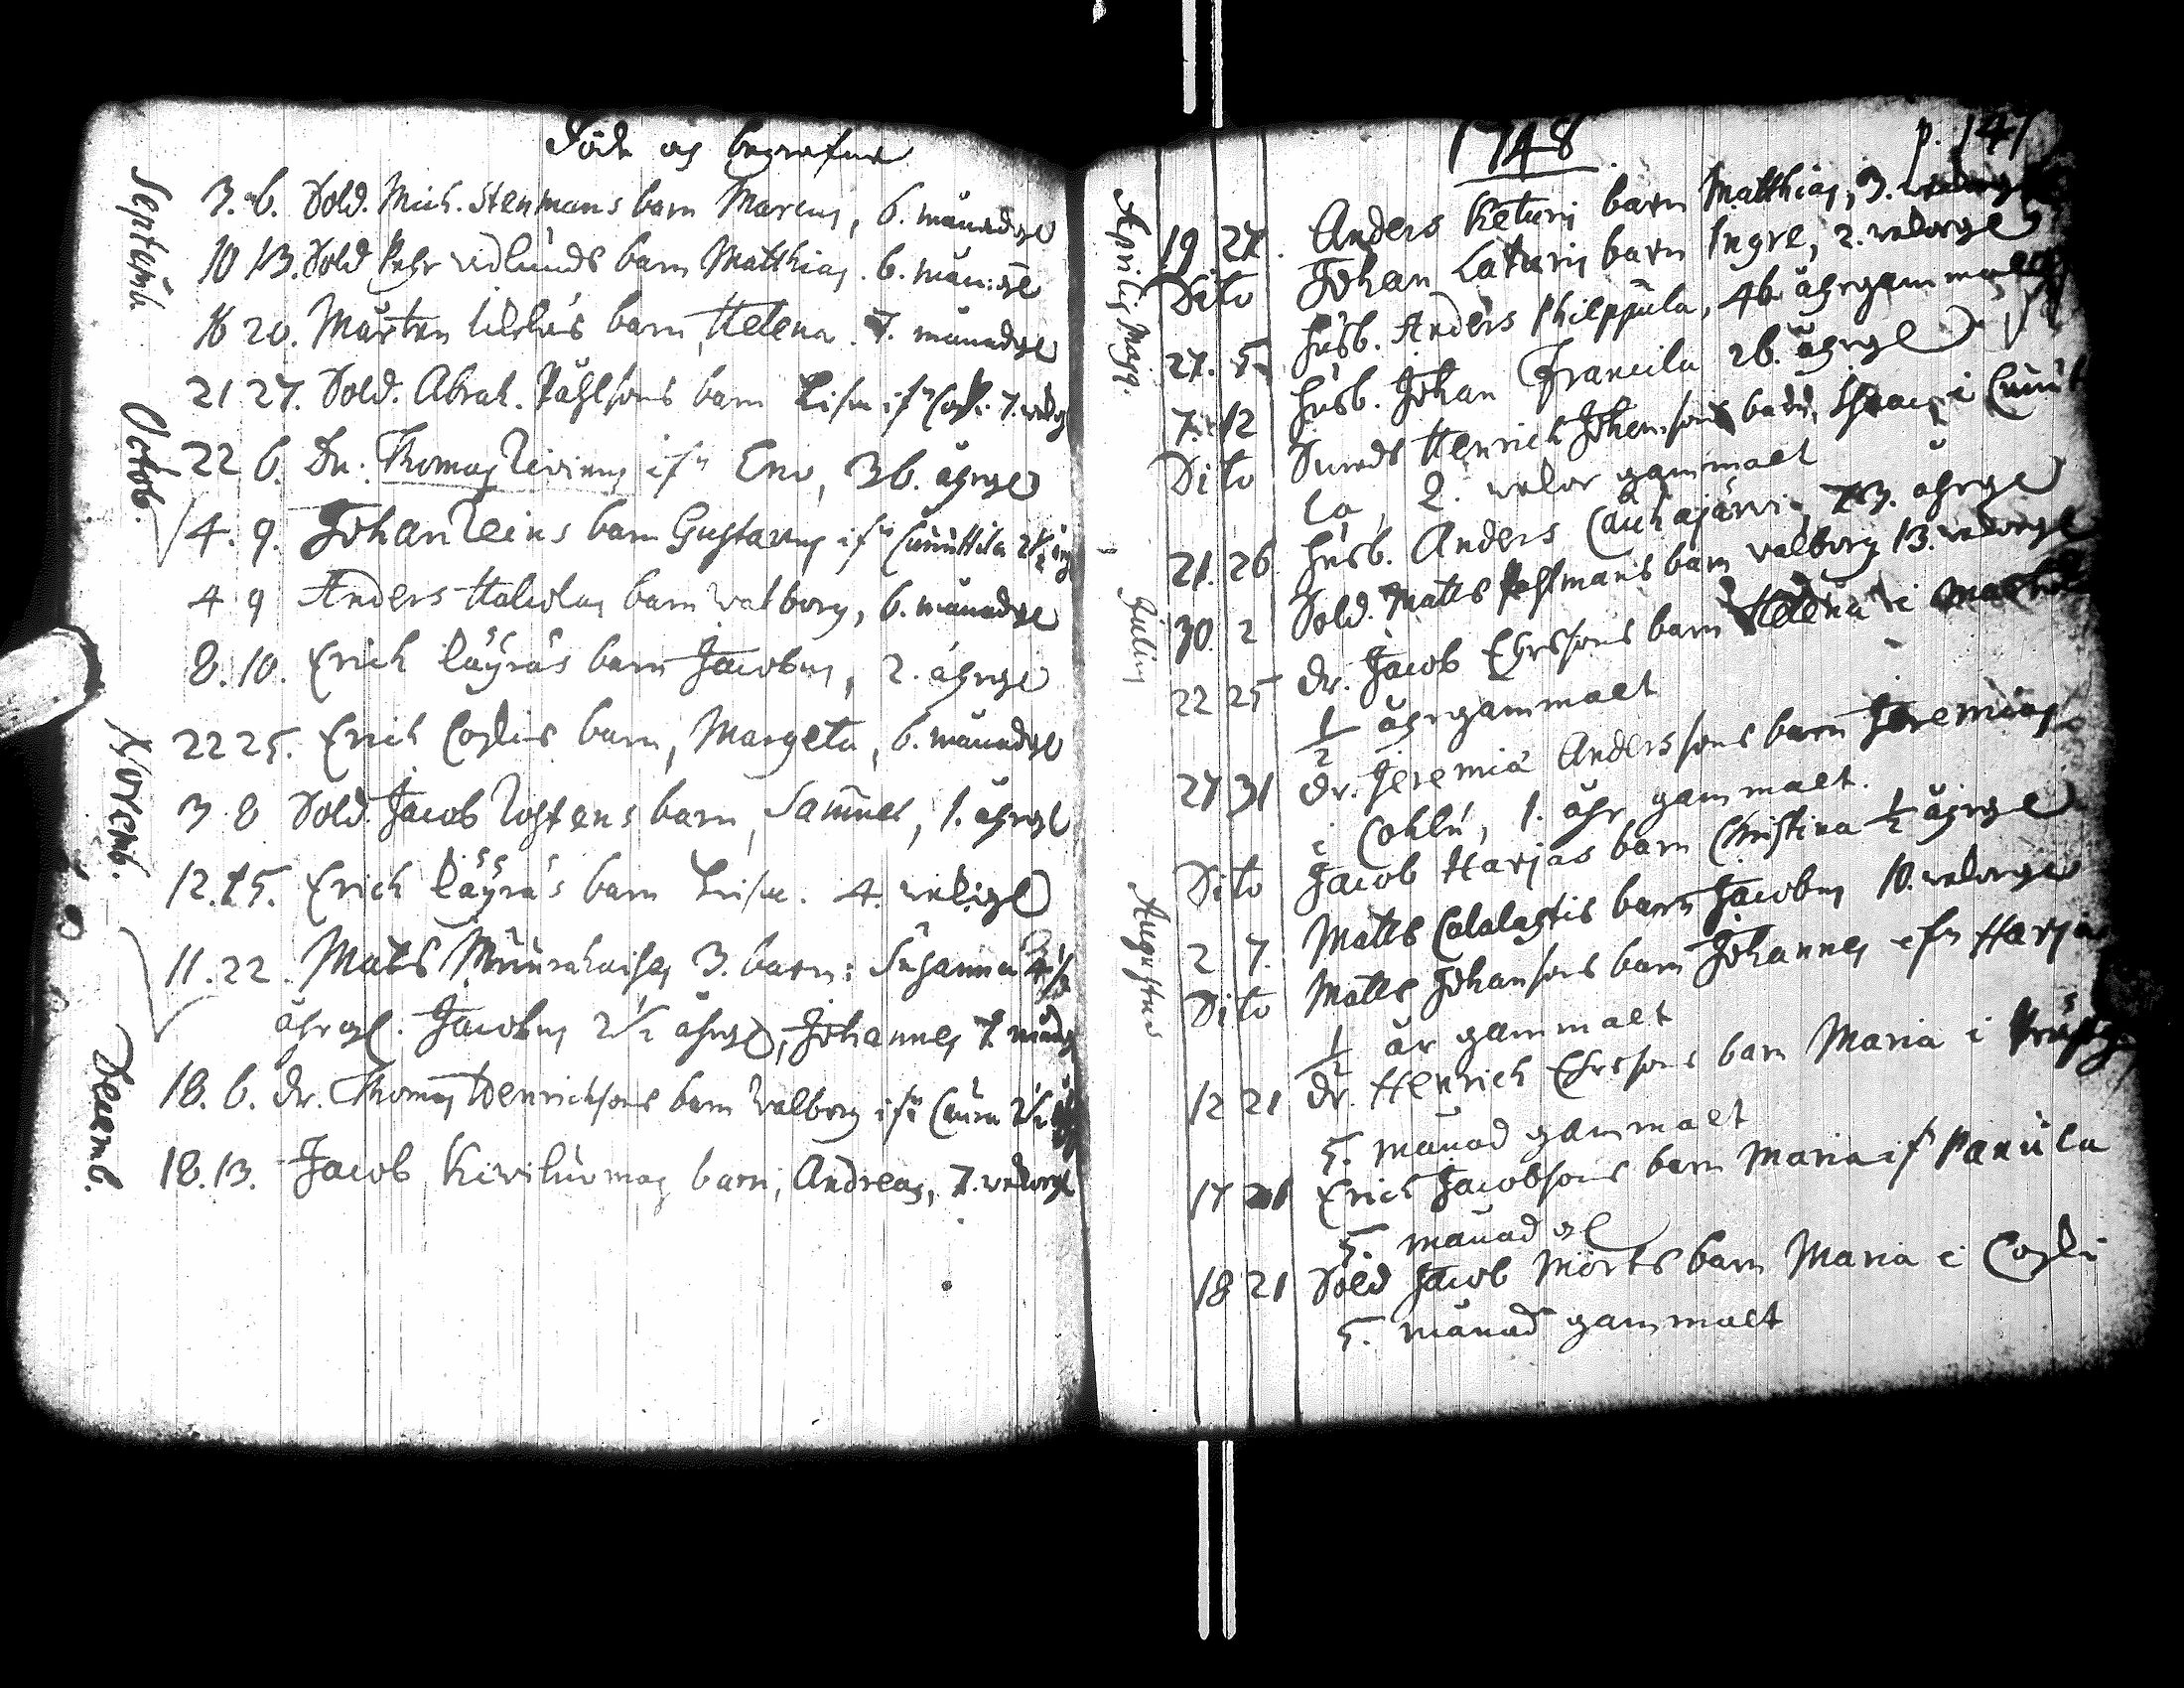 Döde og begrafne
Septemb.
3. 6. Sold. Mich. Stenmans barn Marcus, 6. månadgl
10 13. Sold Pehr vidlunds barn Matthias. 6. mån: gl
16 20. Mårten barn, Helena. 7. månadgl
21 27. Sold. Abrah. Påhlsons barn Lisa ifrn 7.
22 6. Dn. Thomas ifrn Eno, 36. åhrgl
Octob.
4. 9. Johan Leins barn Gustavus ifrn Cunnttila 2 1/2
4 9 Anders barn walborg, 6. månadgl
8. 10. Erich Läyräs barn Jacobus, 2. åhrgl
22 25. Erich barn, Margeta, 6. månadgl
Novemb.
3 8 Sold. Jacob barn, Samuel, 1. åhrgl
12. 15. Erich Läyräs barn Lisa. 4. gl
11. 22. Mats 3. barn: Susanna
åhrgl. Jacobus 2 1/2 åhrgl, Johannes 7.
Decemb.
18. 6. dr. Thomas Henrichsons barn Walborg ifrn 2 1/2
18. 13. Jacob barn, Andreas, 7.
1748
p. 147
Aprilis
19 27. Anders Keturis barn Matthias, 3.
Dito Johan Laturis barn Ingre, 2. wekorgl
Majg.
27. 5 husb. Anders Philppula, 46 åhrgammal
7. 12 husb. Johan Francila 26. åhrgl
Dito Henrich Johansons barn, i
la, 2. wekor gammalt
21. 26 husb. Anders Cauhajärvi, 73. åhrgl
30. 2 Sold. Matts Pahlmans barn walborg 13. wekorgl
Julius
22 25 dr. Jacob Ehrssons barn Helena i
1/2 åhrgammalt
27 31 dr. Jeremia Anderssons barn Jeremias
i Cohlu, 1. åhr gammalt.
Dito Jacob Harjas barn Christina 1/2 åhrgl
Augustus
2 7. Matts barn Jacobus 10. wekorgl
Dito Matts Johansons barn Johannes ifrn Harja
1/2 år gammalt
12 21 dr. Henrich Ehrssons barn Maria i
5. månad gammalt
17 21 Erich Jacobsons barn Maria if Panula
5. månad gl
18 21 Sold Jacob Mörts barn Maria i
5. månad gammalt